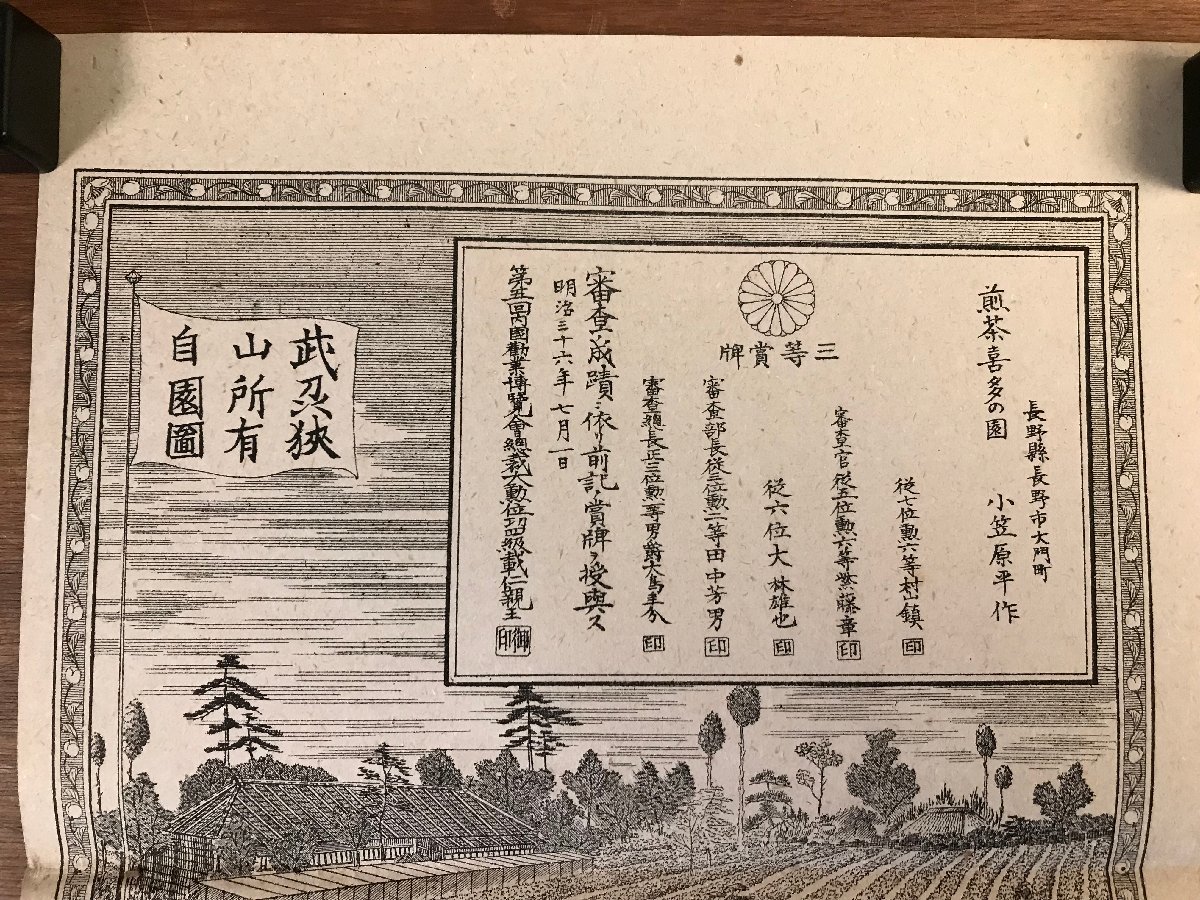 長野縣長野市大門町
煎茶喜多の園 小笠原平作
三等賞牌
從七位勲六等村山鎮 印
審査官從五位勲六等紫藤章 印
從六位大林雄也 印
審査部長從三位勲二等田中芳男 印
審査總長正三位勲一等男爵大鳥圭介 印
審査ノ成蹟ニ依リ前記ノ賞牌ヲ授與ス
明治三十六年七月一日
第五回内國勸業博覽會總裁大勲位功四級載仁親王 御印
武刕狹
山所有
自園圖